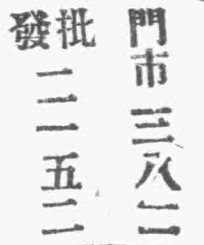 門市三八二
批發二二五二